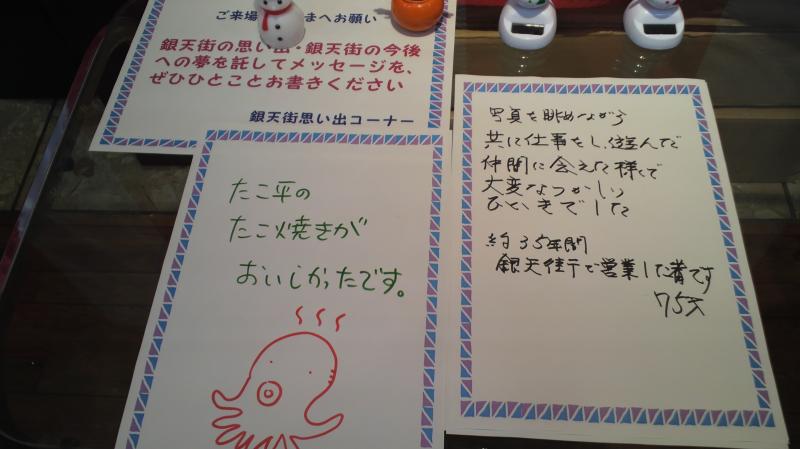 ご来場 まへお願い
銀天街の思い出・銀天街の今後
への夢を託してメッセージを、
ぜひひとことお書きください
銀天街思い出コーナー
たこ平の
たこ焼きが
おいしかったです。
写真を眺めながら
共に仕事をし、遊んだ
仲間に会えた様で
大変なつかしい
ひとときでした
約35年間
銀天街で営業した者です
75才